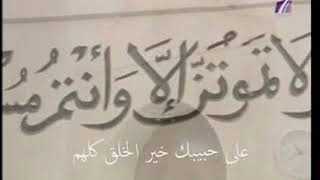 لا تموتنّ إلّا وأنتم مس
على حبيبك خير الخلق كلهم